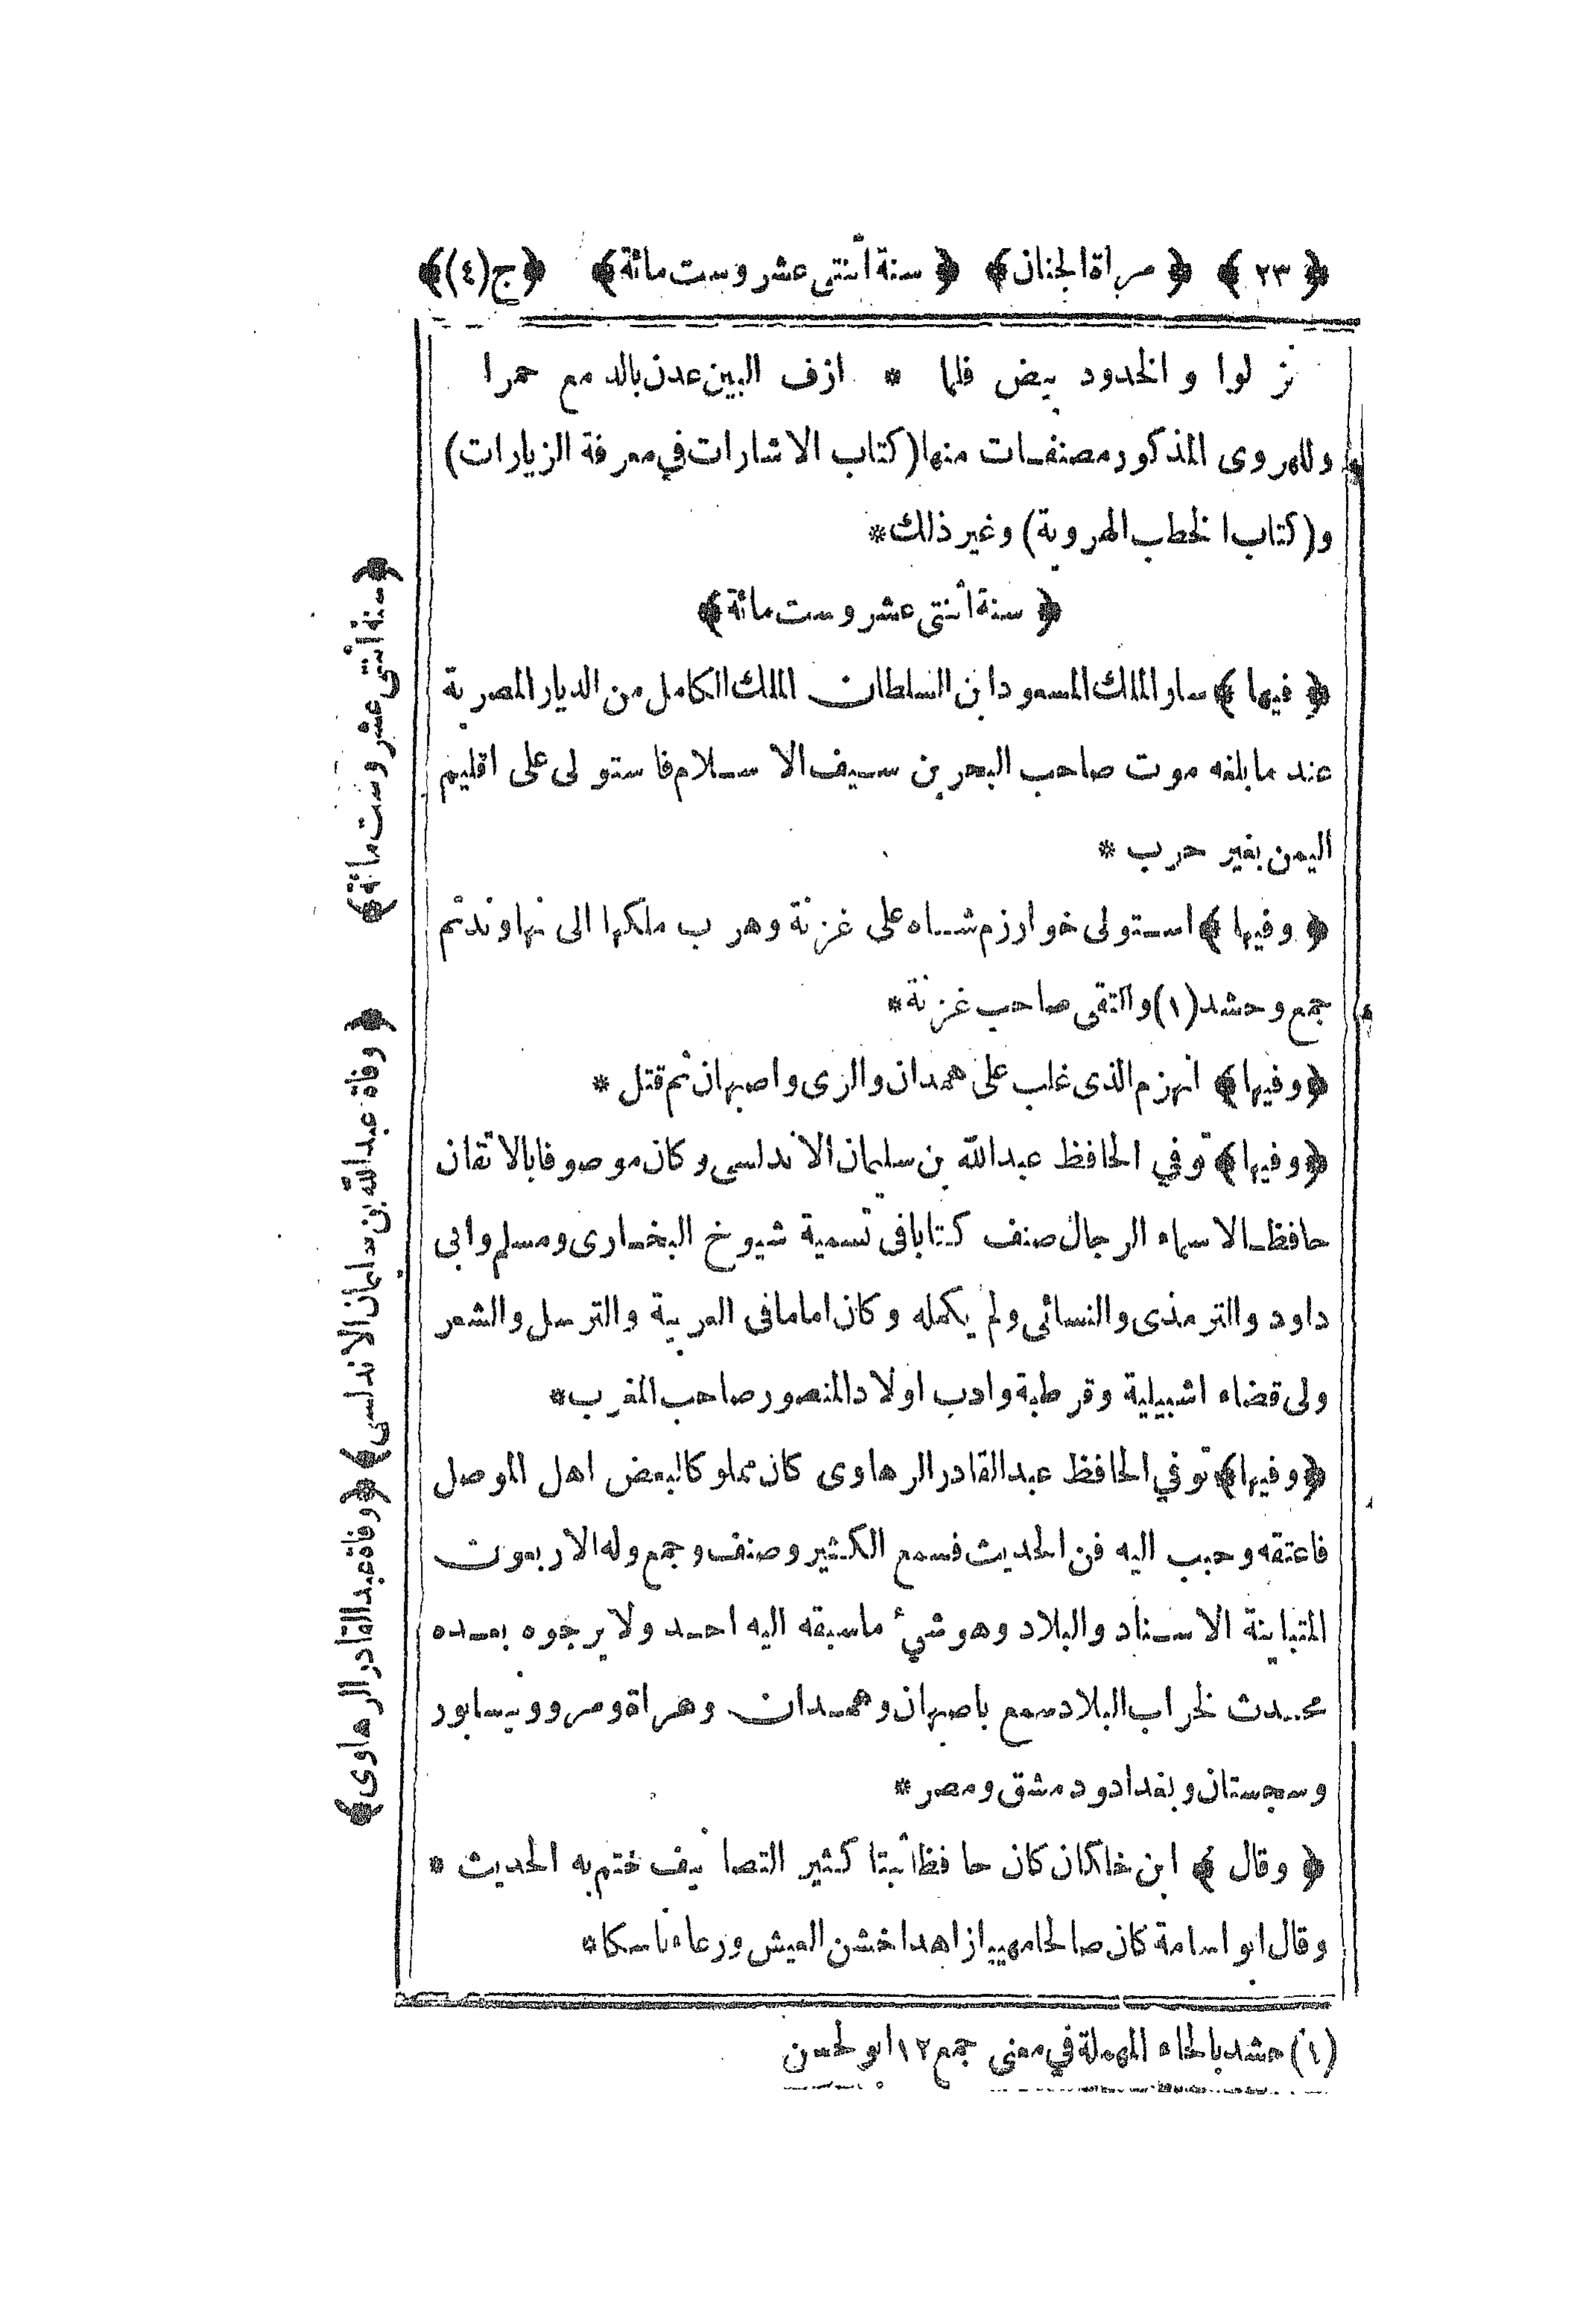 ﴿ ٢٣ ﴾ ﴿ مرأة الجنان ﴾ ﴿ سنة أثنتى عشر وست مائة ﴾ ﴿ ج (٤) ﴾
نزلوا والخدود بيض فلما * ازف البين عدن بالدمع حمرا
وللهروى المذكور مصنفات منها (كتاب الاشارات في معرفة الزيارات)
و (كتاب الخطب الهروية) وغير ذلك *
﴿ سنة أثنتى عشر وست مائة ﴾
﴿ فيها ﴾ سار الملك المسعود ابن السلطان الملك الكامل من الديار المصرية
عند ما بلغه موت صاحب البحر بن سيف الاسلام فاستولى على اقليم
اليمن بغير حرب *
﴿ وفيها ﴾ استولى خوارزم شاه على غزنة وهرب ملكها الى نهاوند ثم
جمع وحشد (١) والتقى صاحب غزنة *
﴿ وفيها ﴾ انهزم الذى غلب على همدان والرى واصبهان ثم قتل *
﴿ وفيها ﴾ توفي الحافظ عبد الله بن سليمان الاندلسى وكان موصوفا بالاتقان
حافظا لاسماء الرجال صنف كتابا فى تسمية شيوخ البخارى ومسلم وابى
داود والترمذى والنسائى ولم يكمله وكان اماما فى العربية والترسل والشعر
ولى قضاء اشبيلية وقرطبة وادب اولاد المنصور صاحب المغرب *
﴿ وفيها ﴾ توفي الحافظ عبد القادر الرهاوى كان مملوكا لبعض اهل الموصل
فاعتقه وحبب اليه فن الحديث فسمع الكثير وصنف وجمع وله الاربعون
المتباينة الاسناد والبلاد وهو شئ ما سبقه اليه احد ولا يرجوه بعده
محدث لخراب البلاد سمع باصبهان وهمدان وهراة ومرو ونيسابور
وسجستان وبغداد ودمشق ومصر *
﴿ وقال ﴾ ابن خلكان كان حافظا ثبتا كثير التصانيف ختم به الحديث *
وقال ابو اسامة كان صالحا مهيبا زاهدا خشن العيش ورعا ناسكا *
(١) حشد بالحاء المهملة في معنى جمع ١٢ ابو لحسن
﴿ سنة أثنتى عشر وست مائة ﴾
﴿ وفاة عبد الله بن سليمان الاندلسى ﴾
﴿ وفاة عبد القادر الرهاوى ﴾